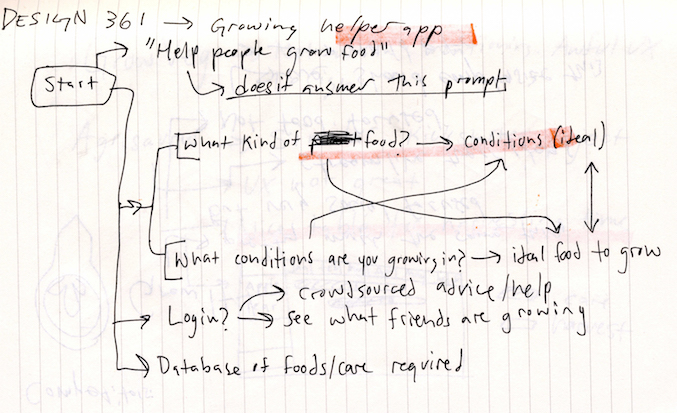 DESIGN 361 → Growing helper app
"Help people grow food"
Start
does it answer this prompt
What kind of food? → conditions (ideal)
What conditions are you growing in? → ideal food to grow
crowdsourced advice/help
Login? → see what friends are growing
Database of foods/care required